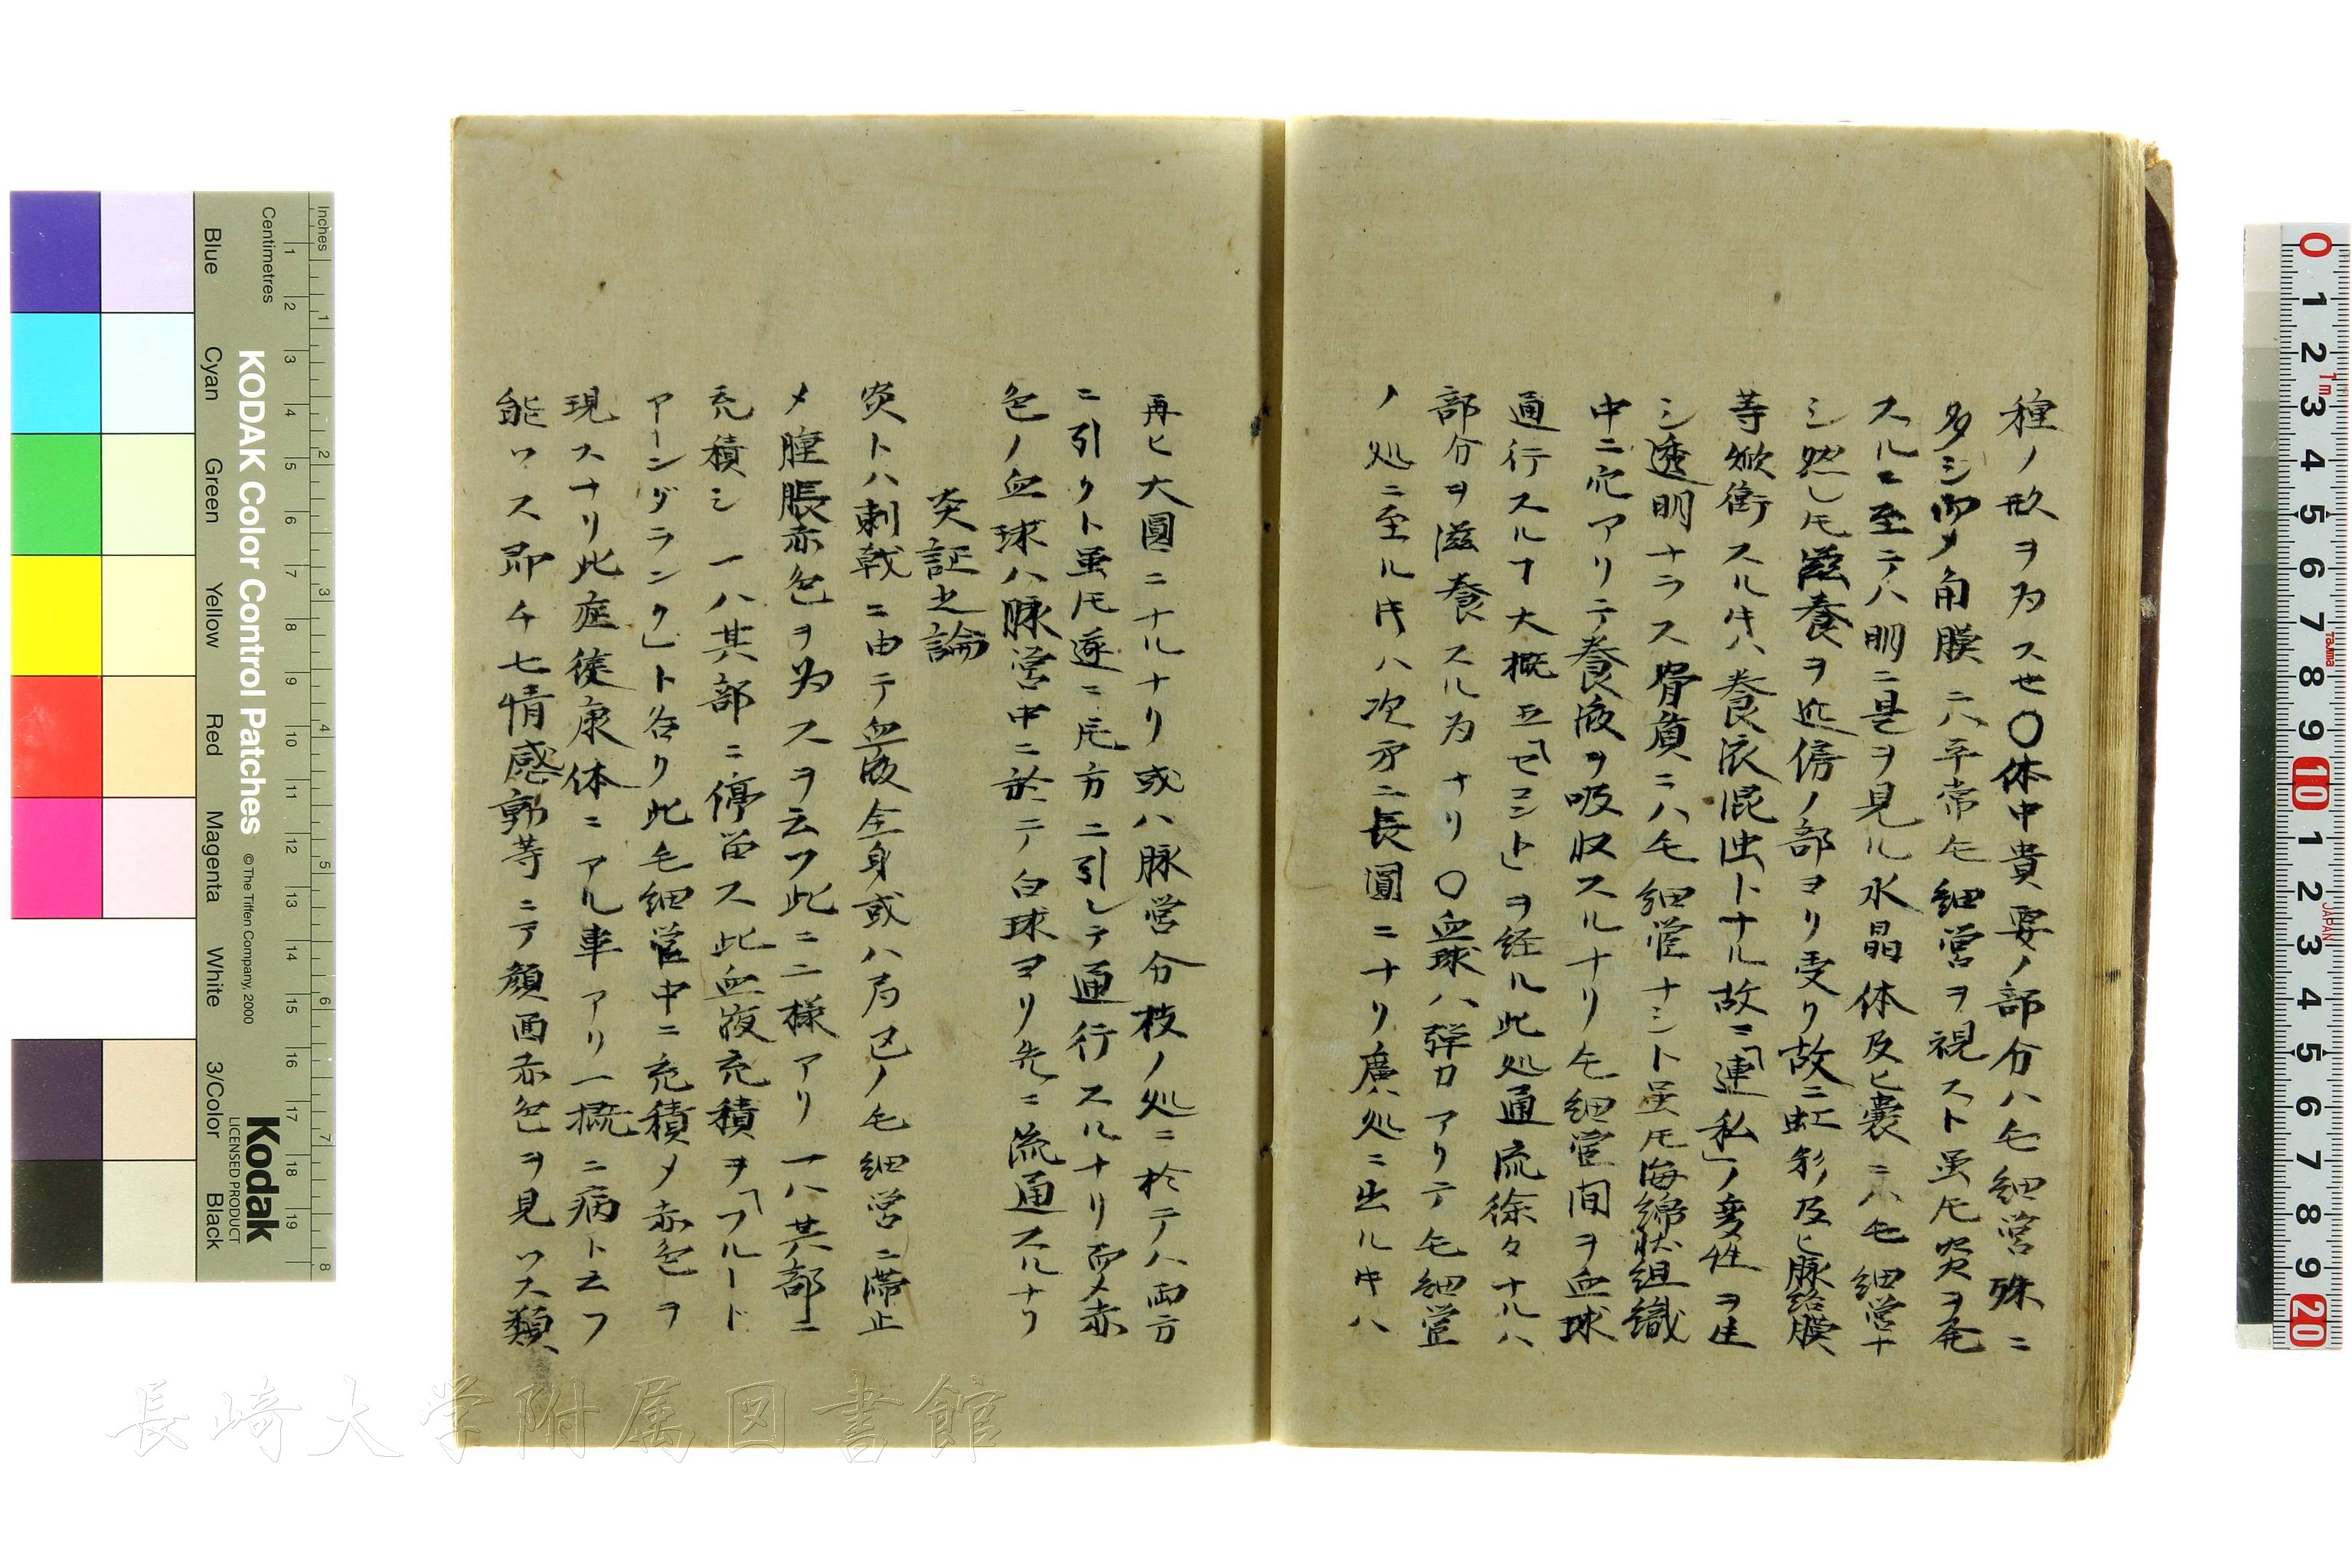 種ノ形ヲ為スせ〇体中貴要ノ部分ハ毛細営殊ニ
多シ而メ角膜ニハ平常毛細営ヲ視スト虽𪜈炎ヲ発
スルニ至テハ明ニ是ヲ見ル水晶体及ヒ嚢ニハ毛細営ナ
シ然レ𪜈滋養ヲ近傍ノ部ヨリ受ク故ニ虹彩及ヒ脉絡膜
等焮衝スル𪜀ハ養液混浊トナル故ニ「連私」ノ変性ヲ生
シ透明ナラス骨質ニハ毛細管ナシト虽𪜈海綿状組織
中ニ穴アリテ養液ヲ吸収スルナリ毛細管間ヲ血球
通行スルヿ大概五「セコンド」ヲ経ル此処通流徐々ナルハ
部分ヲ滋養スル为ナリ〇血球ハ弾力アリテ毛細管
ノ処ニ至ル𪜀ハ次第ニ長圓ニナリ廣処ニ出ル𪜀ハ
再ヒ大圓ニナルナリ或ハ脉営分枝ノ処ニ於テハ両方
ニ引クト虽𪜈遂ニ片方ニ引レテ通行スルナリ而メ赤
色ノ血球ハ脉営中ニ於テ白球ヨリ先ニ流通スルナリ
炎証之論
炎トハ刺戟ニ由テ血液全身或ハ局処ノ毛細営ニ滞止
メ腫脹赤色ヲ为スヲ云フ此ニ二様アリ一ハ其部ニ
充積シ一ハ其部ニ停畄ス此血液充積ヲ「フルード
アーンダランク」ト名ク此毛細管中ニ充積メ赤色ヲ
現スナリ此症徒康体ニアル事アリ一概ニ病ト云フ
能ワス即チ七情感動等ニテ顔面赤色ヲ見ワス類
KODAK Color Control Patches
© The Tiffen Company, 2000
Kodak
LICENSED PRODUCT
Inches
Centimetres
Blue
Cyan
Green
Yellow
Red
Magenta
White
3/Color
Black
長崎大学附属図書館